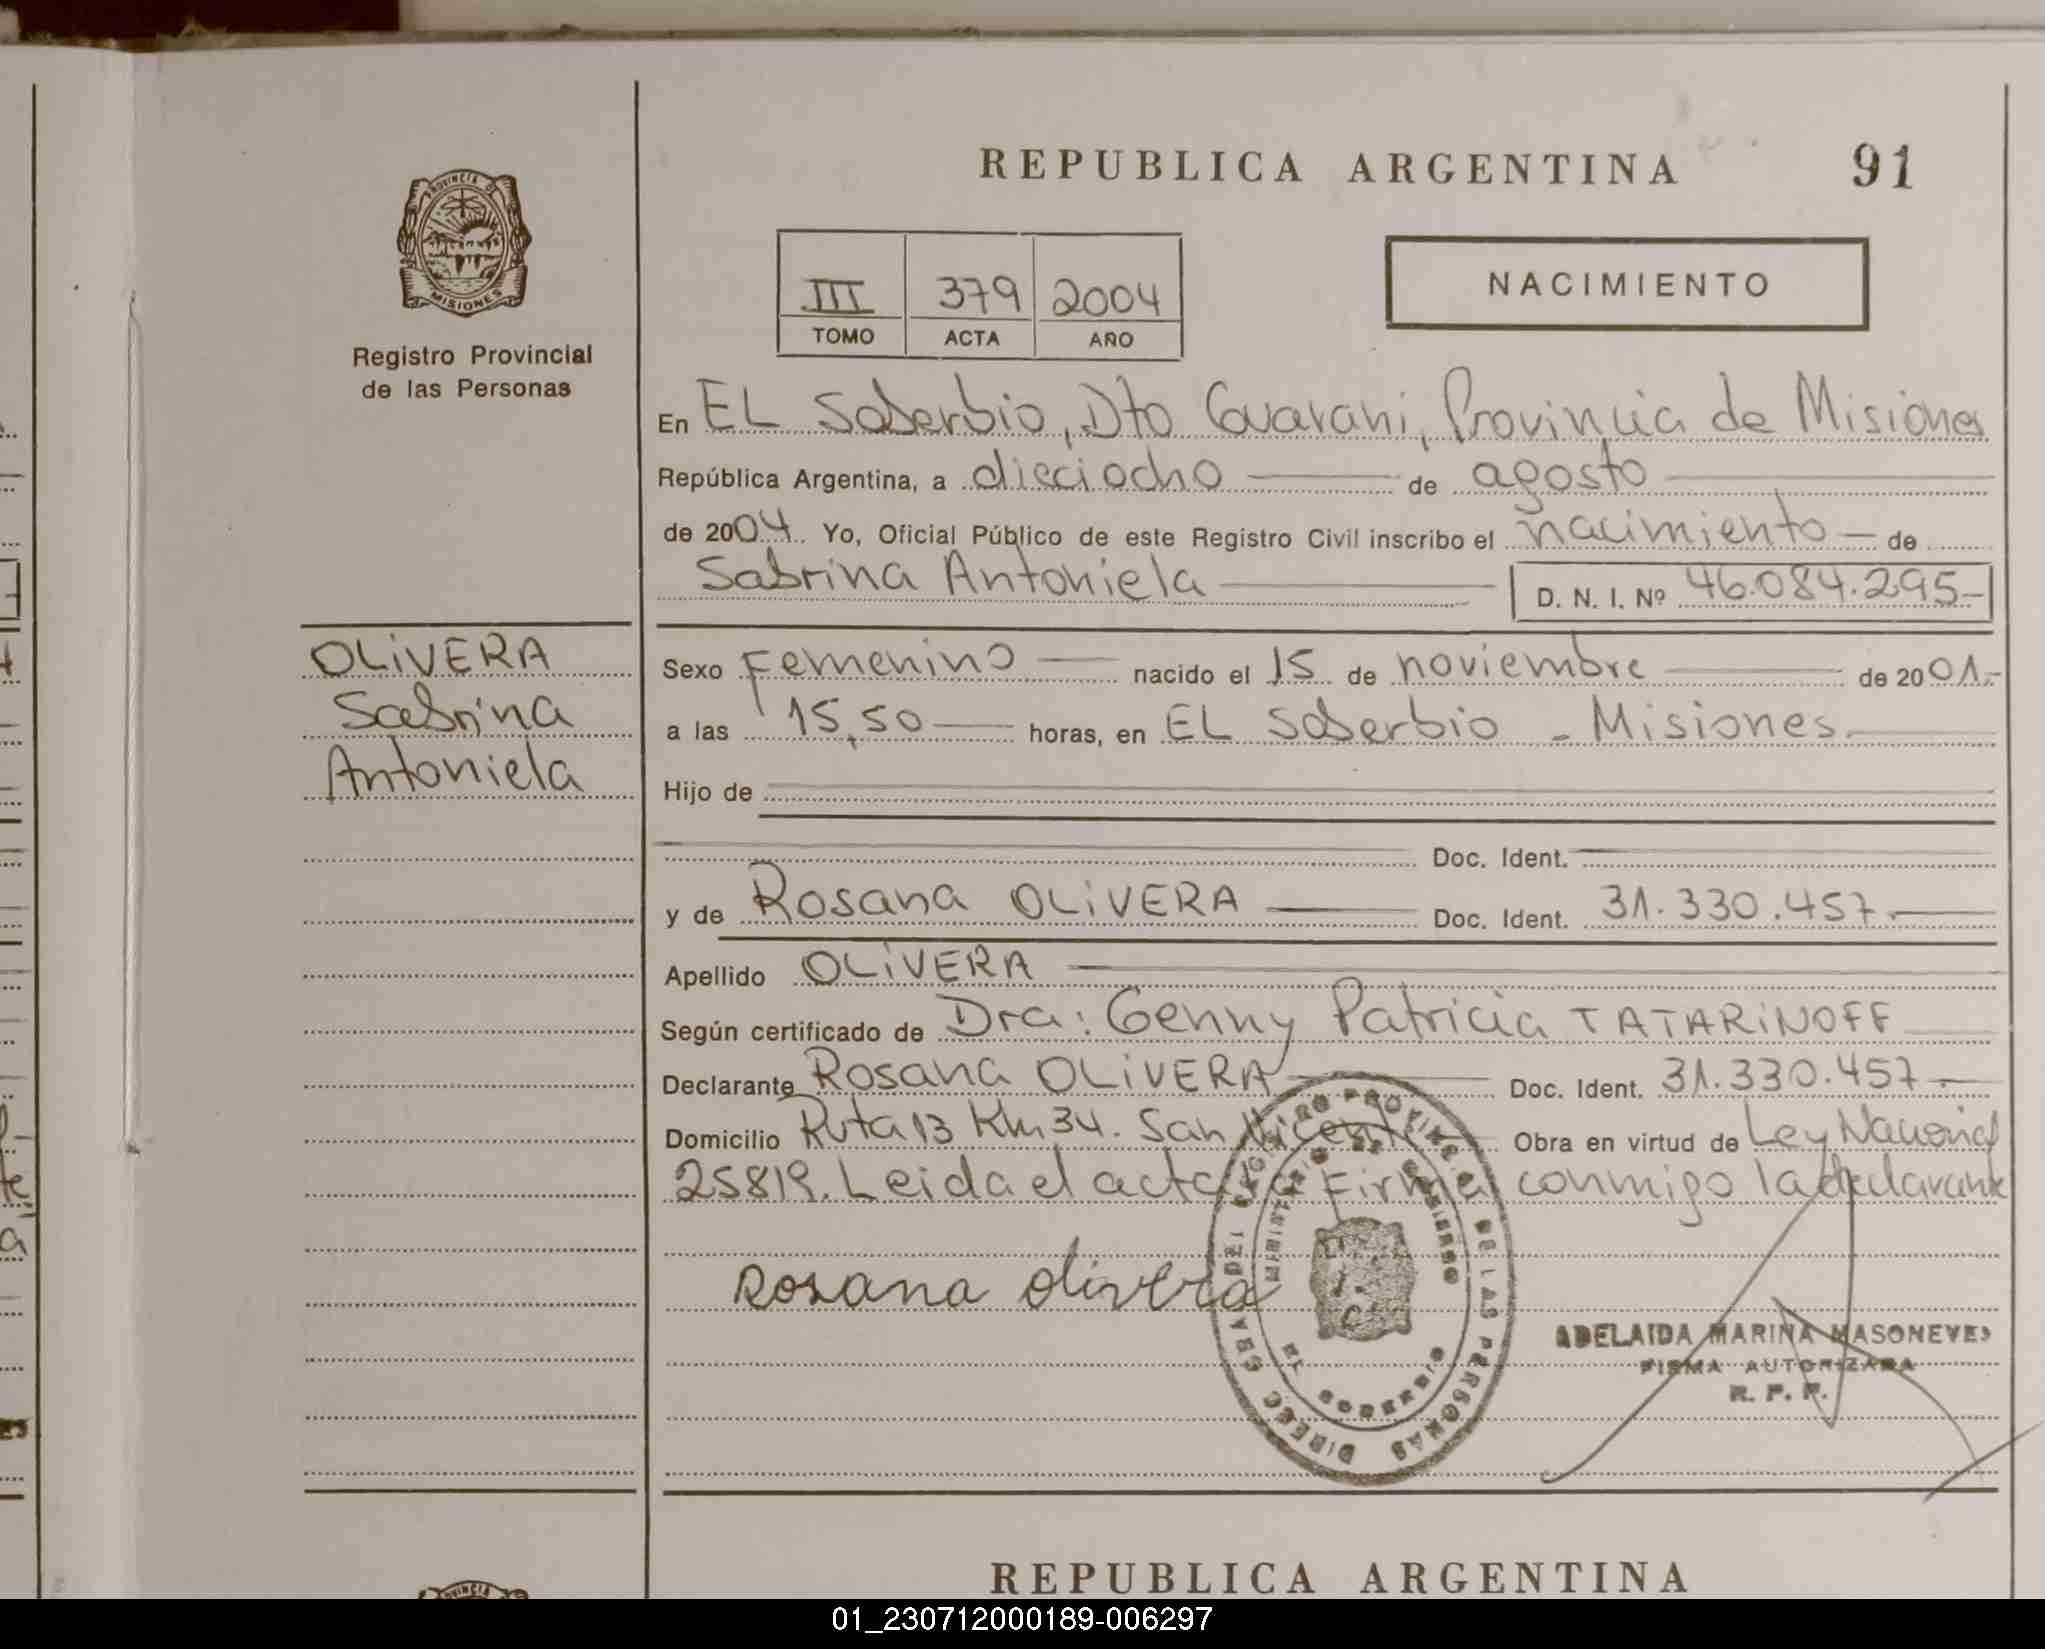 REPUBLICA ARGENTINA 91
PROVINCIA DE MISIONES
Registro Provincial
de las Personas
III 379 2004
TOMO ACTA AÑO
NACIMIENTO
En EL Soberbio, Dto Guarani, Provincia de Misiones
República Argentina, a dieciocho de agosto
de 2004. Yo, Oficial Público de este Registro Civil inscribo el nacimiento de
Sabrina Antoniela D. N. I. Nº 46.084.295-
OLIVERA
Sabrina
Antoniela
Sexo Femenino nacido el 15 de noviembre de 2001.-
a las 15,50 horas, en EL Soberbio - Misiones.
Hijo de
Doc. Ident.
y de Rosana OLIVERA Doc. Ident. 31.330.457.
Apellido OLIVERA
Según certificado de Dra: Genny Patricia TATARINOFF
Declarante Rosana OLIVERA Doc. Ident. 31.330.457.-
Domicilio Ruta 13 Km 34. San Vicente Obra en virtud de Ley Nacional
25819. Leida el acta Firma conmigo la declarante
Rosana Olivera
DIRECC GRAL DEL REGISTRO PROVINC DE LAS PERSONAS
MINISTERIO DE GOBIERNO
EL SOBERBIO
ADELAIDA MARINA MASONEVES
FIRMA AUTORIZADA
R. P. P.
REPUBLICA ARGENTINA
PROVINCIA
01_230712000189-006297